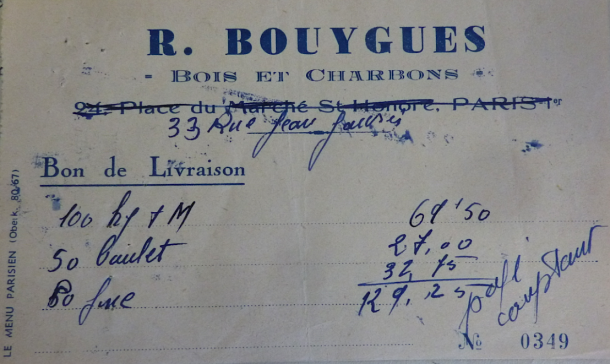 R. BOUYGUES
BOIS ET CHARBONS
24, Place du Marché St-Honoré, PARIS-1er
33 Rue Jean Jaurès
Bon de Livraison
100 kg 69,50
50 boulet 27,00
50 32,75
129,25
payé comptant
No 0349
LE MENU PARISIEN (Oberk. 80/67)